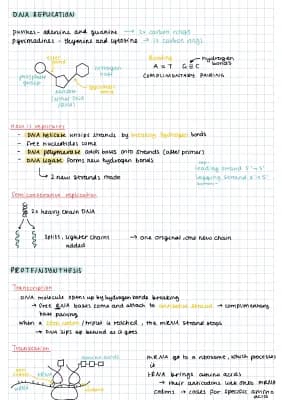 DNA REPLICATION
purines - adenine and guanine → 2x carbon rings
pyrimidines - thymine and cytosine → 1x carbon ring
Bonding
hydrogen bonds
A = T G ≡ C
COMPLIMENTARY PAIRING
phosphate group
nitrogen base
ester bond
glycosidic bond
pentose sugar (DNA)
How it replicates
- DNA helicase unzips strands by breaking hydrogen bonds
- free nucleotides come
- DNA polymerase adds bases onto strands (after primer)
- DNA ligase forms new hydrogen bonds
↳ 2 new strands made
leading strand 5' → 3'
lagging strand 3' → 5'
Semiconservative replication
2x heavy chain DNA
splits, lighter chains added
→ one original, one new chain
PROTEIN SYNTHESIS
Transcription
DNA molecule opens up by hydrogen bonds breaking
→ free RNA bases come and attach to antisense strand → complimentary base pairing
when a stop codon / triplet is reached, the mRNA strand stops
→ DNA zips up behind as it goes
Translation
amino acids
mRNA
mRNA go to a ribosome, which processes it
tRNA brings amino acids
→ their anticodons link onto mRNA
codons → codes for specific amino acid